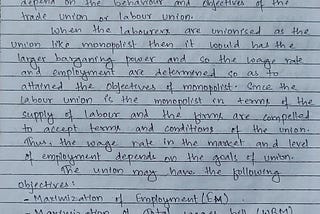 depend on the behaviour and objectives of the
trade union or labour union.
When the labourers are unionised as the
union like monopolist then it would has the
larger bargaining power and so the wage rate
and employment are determined so as to
attained the objectives of monopolist. Since the
labour union is the monopolist in terms of the
supply of labour and the firms are compelled
to accept terms and conditions of the union.
Thus, the wage rate in the market and level
of employment depends on the goals of union.
The union may have the following
objectives:
- Maximization of Employment (EM)
- Maximization of Total wages bill (WBM)